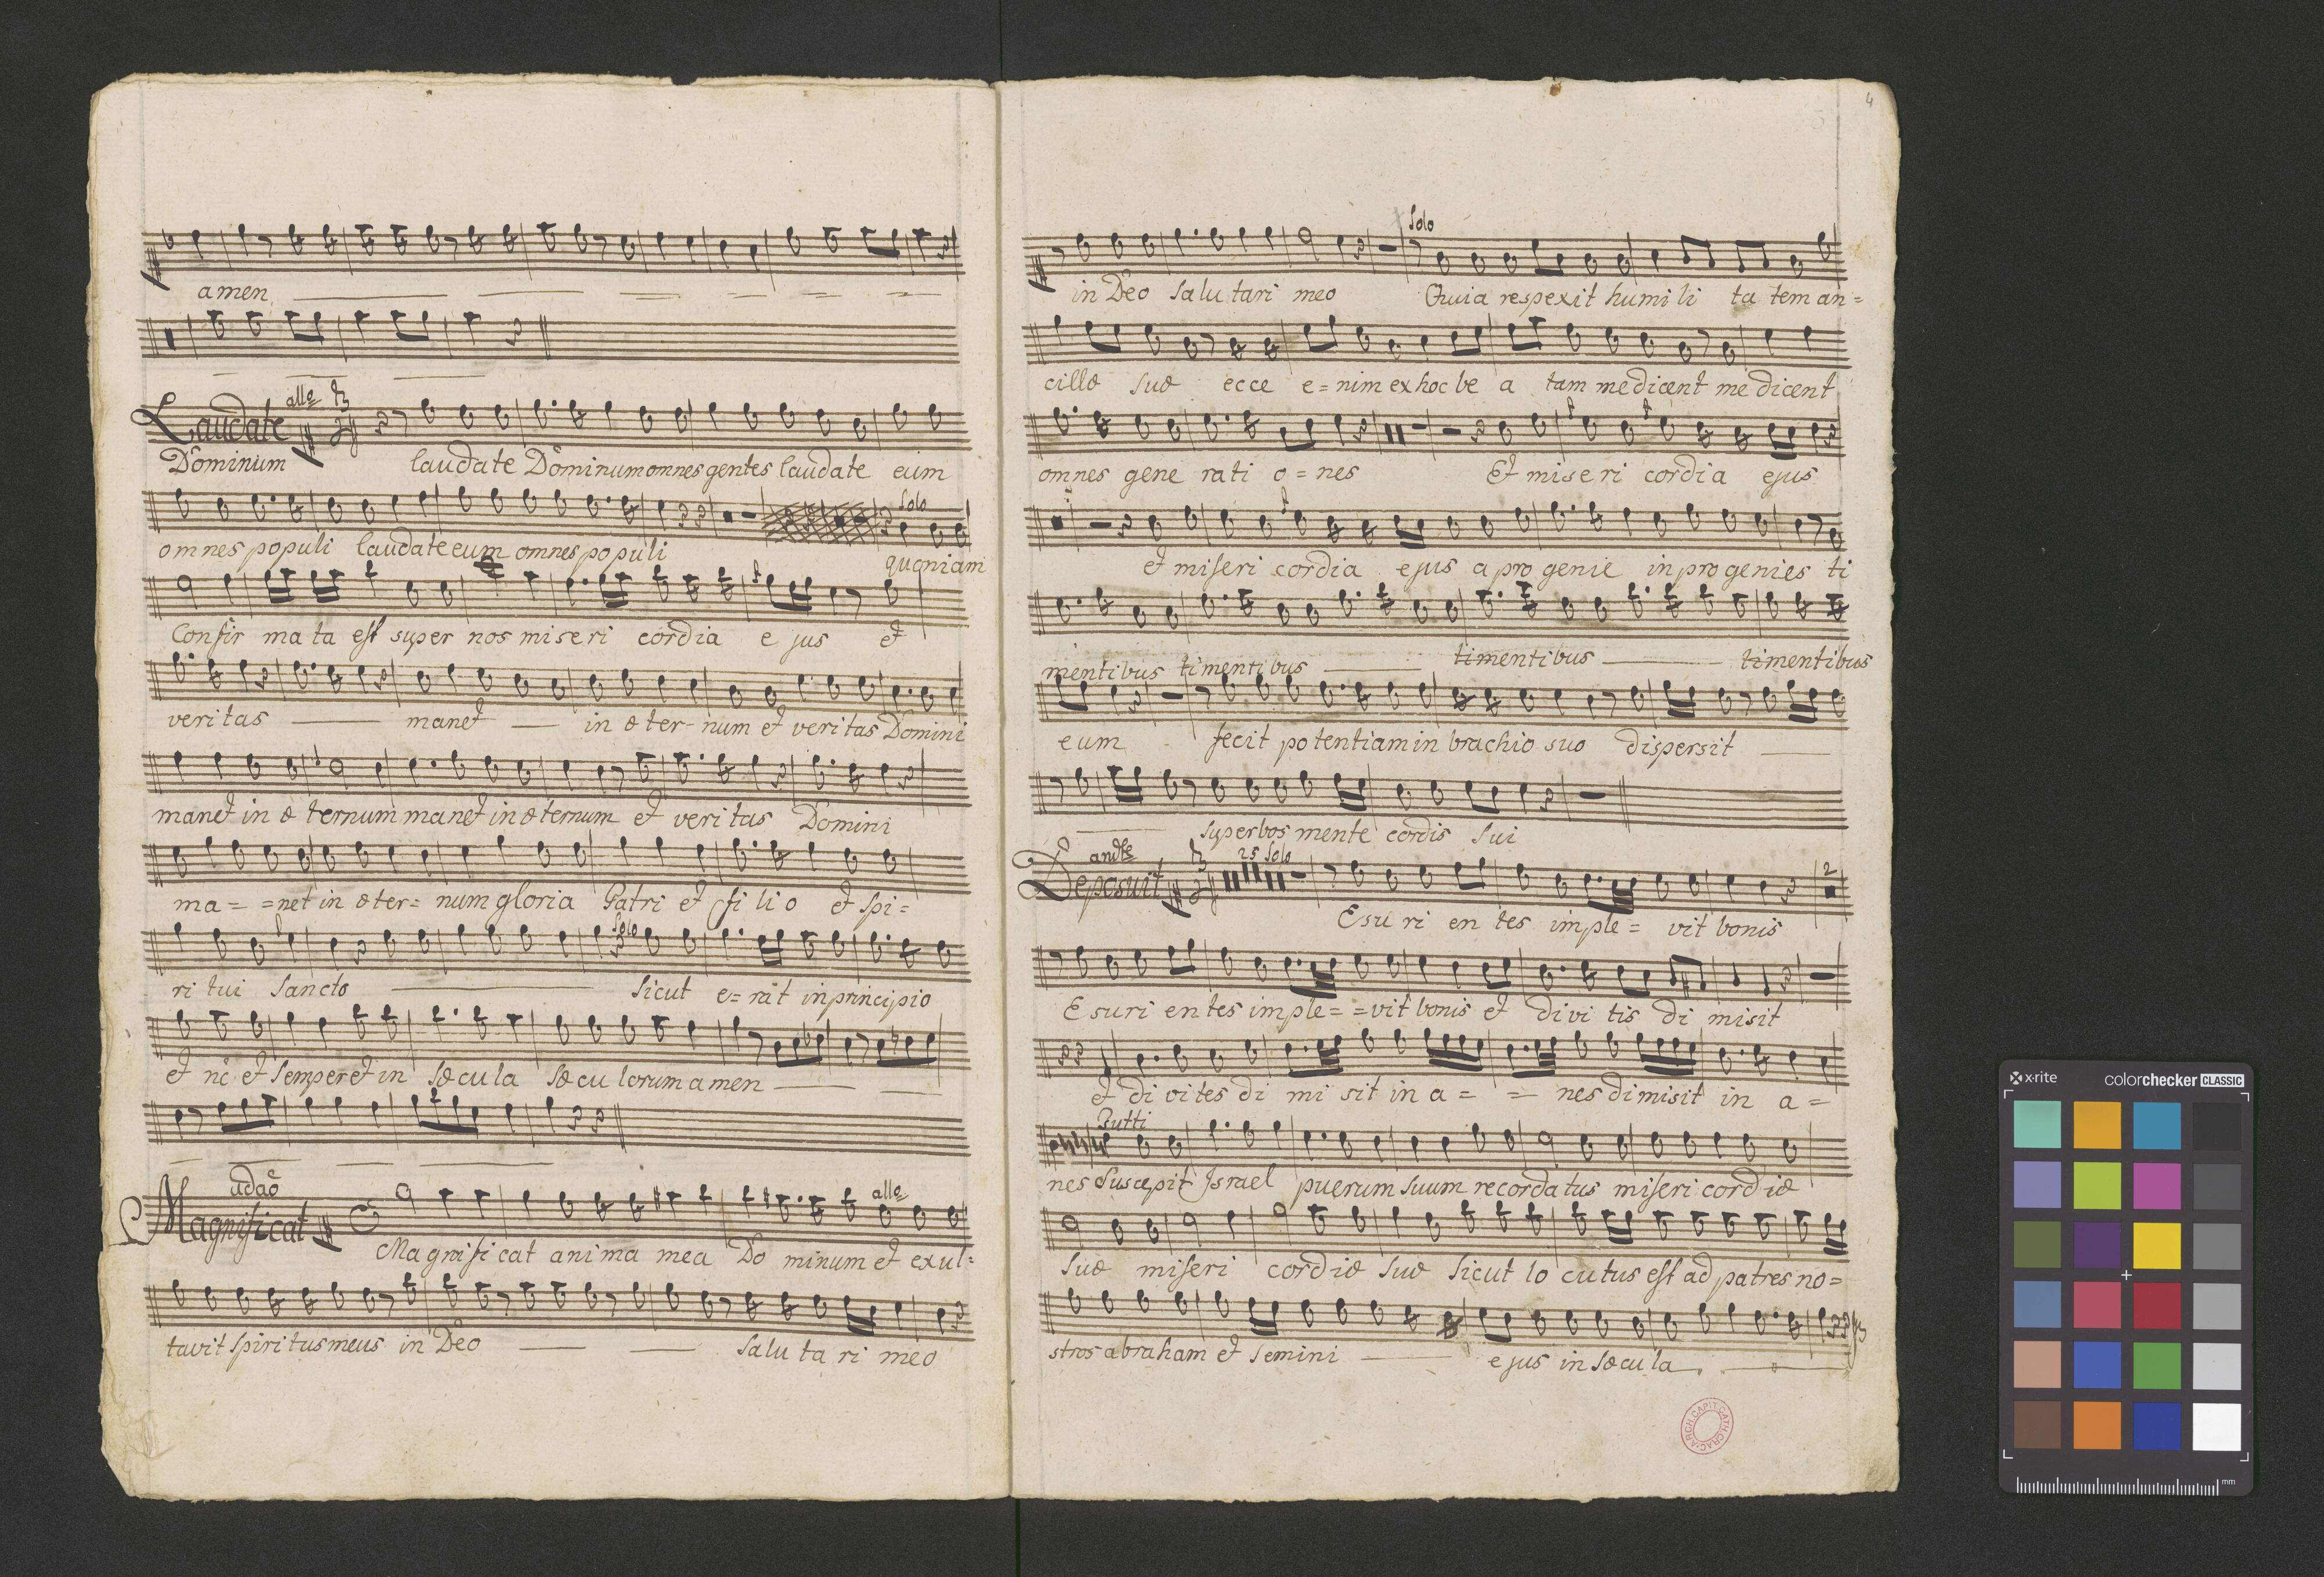 amen
Laudate allo
Dominum laudate Dominum omnes gentes laudate eum
Solo
omnes populi laudate eum omnes populi quoniam
Confir ma ta est super nos miseri cordia e jus et
veritas manet in æ ter- num et veritas Domini
manet in æ ternum manet in æternum et veri tas Domini
ma= =net in æter= num gloria Patri et fi li o et spi=
Solo
ri tui Sancto Sicut e= rat in principio
et nc et Semper et in Sæ cu la Sæ cu lorum amen
adao
allo
Magnificat Magnifi cat anima mea Do minum et exul=
tavit Spiri tus meus in Deo Salu ta ri meo
4
5
Solo
in Deo Salu tari meo Quia respexit humi li ta tem an=
cillæ suæ ecce e= nim ex hoc be a tam me dicent me dicent
omnes gene rati o= nes Et mise ri cordia ejus
et miseri cordia ejus a pro genie in pro genies ti
mentibus timentibus timentibus timentibus
eum fecit potentiam in brachio suo dispersit
superbos mente cordis sui
andte 25 Solo
Deposuit 2
Esu ri en tes imple= vit bonis
Esuri entes imple= =vit bonis et divi tis di misit
et di vi tes di mi sit in a= = nes dimisit in a=
Tutti
nes Suscepit Israel puerum suum recordatus miseri cordiæ
suæ miseri cordiæ suæ Sicut lo cutus est ad patres no=
stros abraham et Semini ejus in Sæcula
ARCH. CAPIT. CATH. CRAC.
x-rite colorchecker CLASSIC
mm